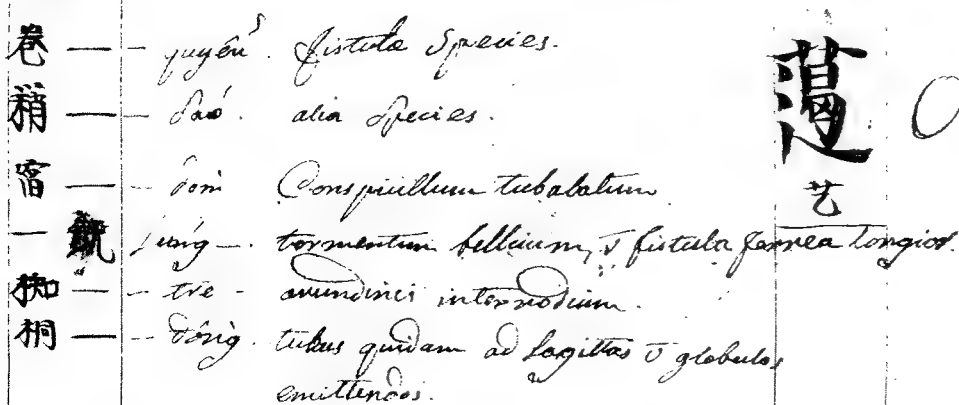 卷 — -- quyển. fistulæ Species.
— -- sáo. alia Species.
— -- dòm Conspicillum tubulatum
一 súng —. tormentum bellicum, v̄ fistula ferrea longior.
椥 — -- tre - arundinis internodium.
桐 — -- đồng. tubus quidam ad sagittas v̄ globulos
emittendos.
艺